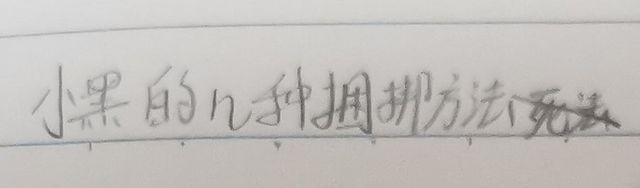 小黑的n种捆绑方法